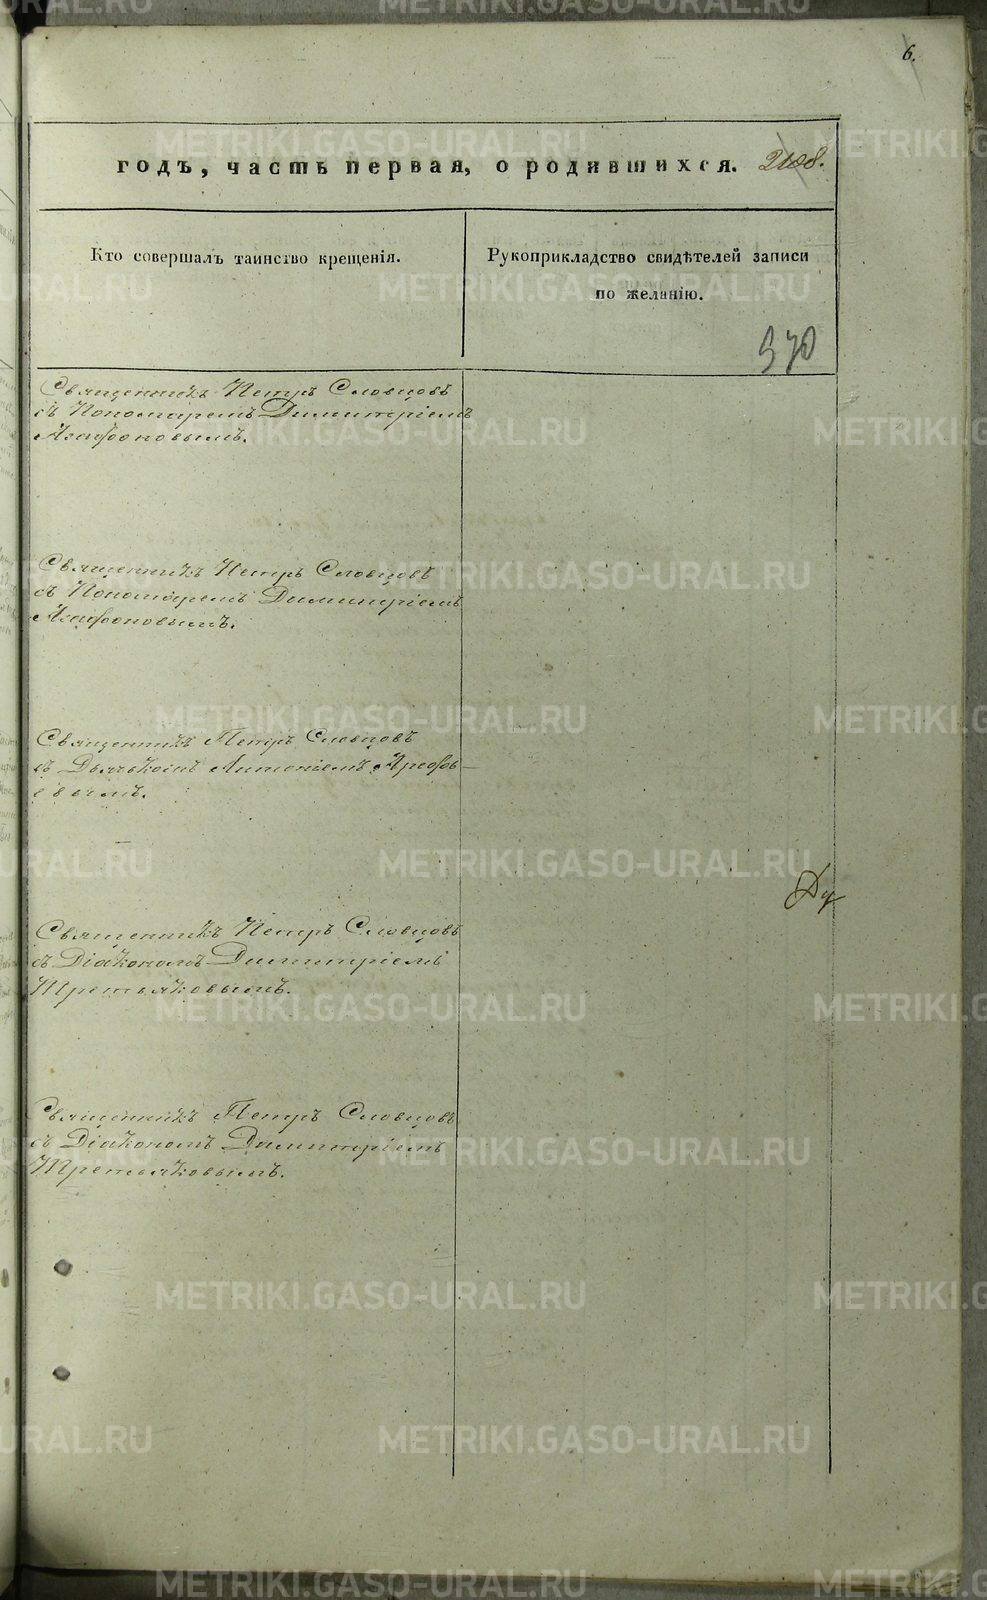 6.
годъ, часть первая, о родившихся. 2108.
Кто совершалъ таинство крещенія.
Рукоприкладство свидѣтелей записи
по желанію.
370
Священникъ Петръ Словцовъ
съ Пономаремъ Димитріемъ
Агафоновымъ.
Священникъ Петръ Словцовъ
съ Пономаремъ Димитріемъ
Агафоновымъ.
Священникъ Петръ Словцовъ
съ Дьячкомъ Антоніемъ
евымъ.
Ду
Священникъ Петръ Словцовъ
съ Діакономъ Димитріемъ
Третьяковымъ.
Священникъ Петръ Словцовъ
съ Діакономъ Димитріемъ
Третьяковымъ.
METRIKI.GASO-URAL.RU